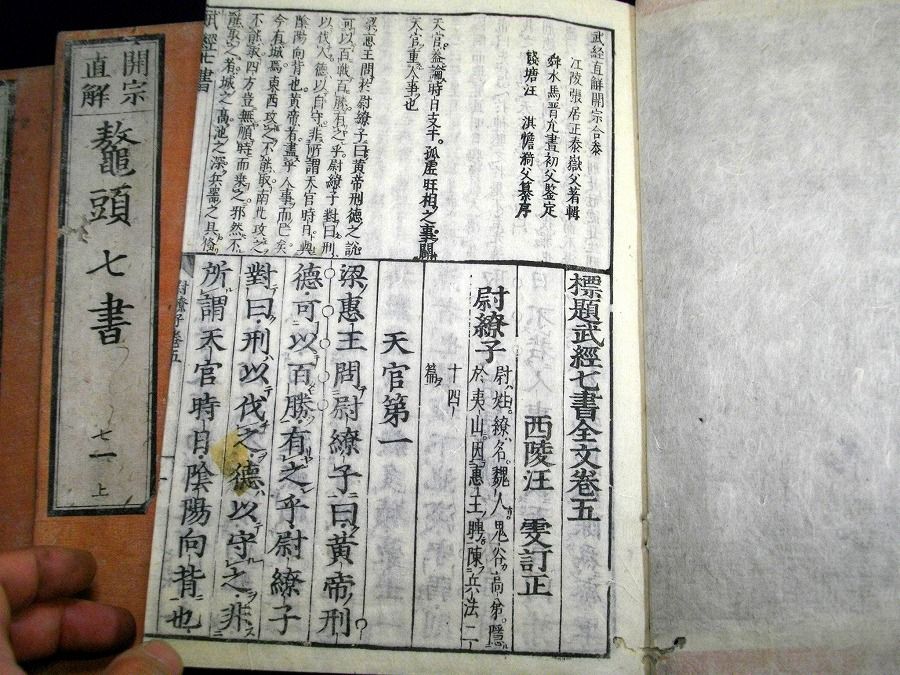 武経直解開宗合叅
江陵張居正泰嶽父著輯
舜水馬晋允晝初父鑒定
錢塘汪淇憺漪父纂序
天官盖論時日支干孤虛旺相之事關
天官重人事也
梁惠王問於尉繚子曰黃帝刑德之說
可以百戰百勝有之乎尉繚子對曰刑
以伐人德以自守非所謂天官時日與
陰陽向背也黃帝者盡乎人事而已矣
今有城焉東西攻之不能取南北攻之
不能取四方豈無順時而乗之邪然不
能取之者城之高池之深兵器之具俻
標題武經七書全文卷五
西陵汪雯訂正
尉繚子
尉姓繚名魏人鬼谷高弟隱
於夷山因惠王聘陳兵法二
十四
篇
天官第一
梁惠王問尉繚子曰黃帝刑
德可以百勝有之乎尉繚子
對曰刑以伐之德以守之非
所謂天官時日陰陽向背也
武經七書
尉繚子卷五
開宗
直解
鼇頭七書
七一
上